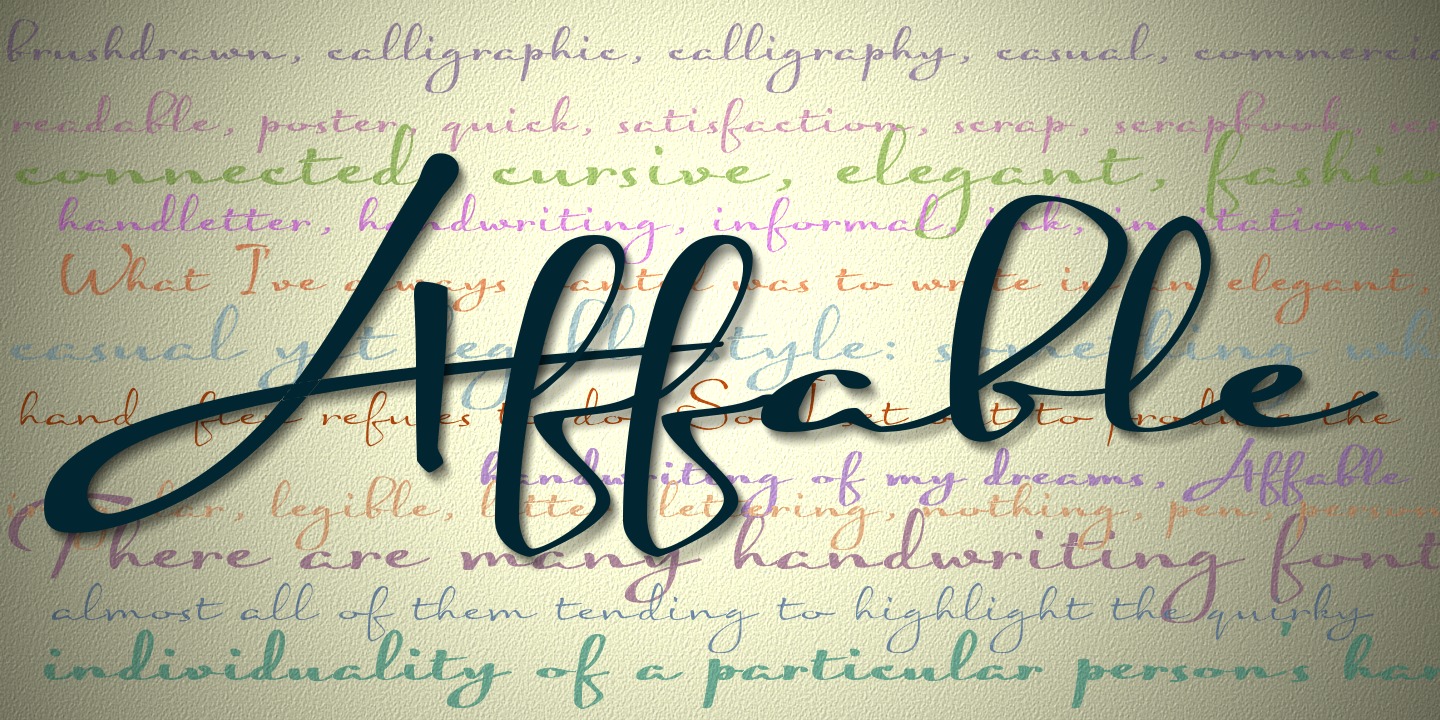 brushdrawn, calligraphic, calligraphy, casual,
readable, poster, quick, satisfaction, scrap, scrapbook,
connected, cursive, elegant,
handletter, handwriting, informal, ink, invitation,
What I've always wanted was to write in an elegant,
casual yet legible style: something
hand often refuses to do. So I set out to produce the
Affable
handwriting of my dreams, Affable
legible, letter, lettering, nothing, pen,
There are many handwriting
almost all of them tending to highlight the quirky
individuality of a particular person's